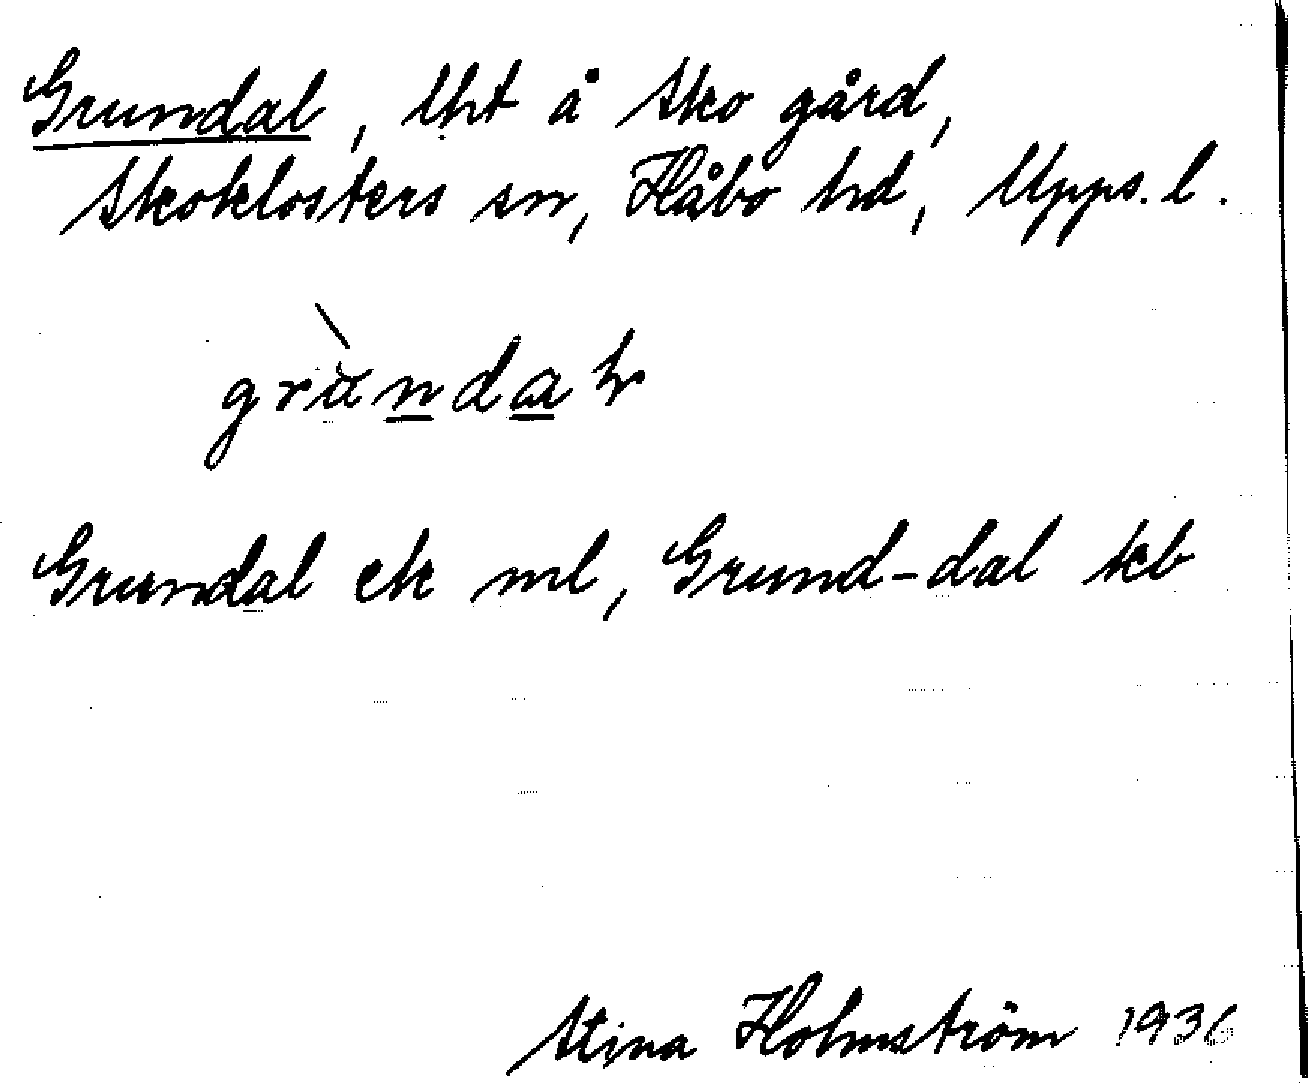 Grundal, lht å Sko gård,
Skoklosters sn, Håbo hd, Upps. l.
Grundal ek ml, Grund-dal kb
Stina Holmström 1936